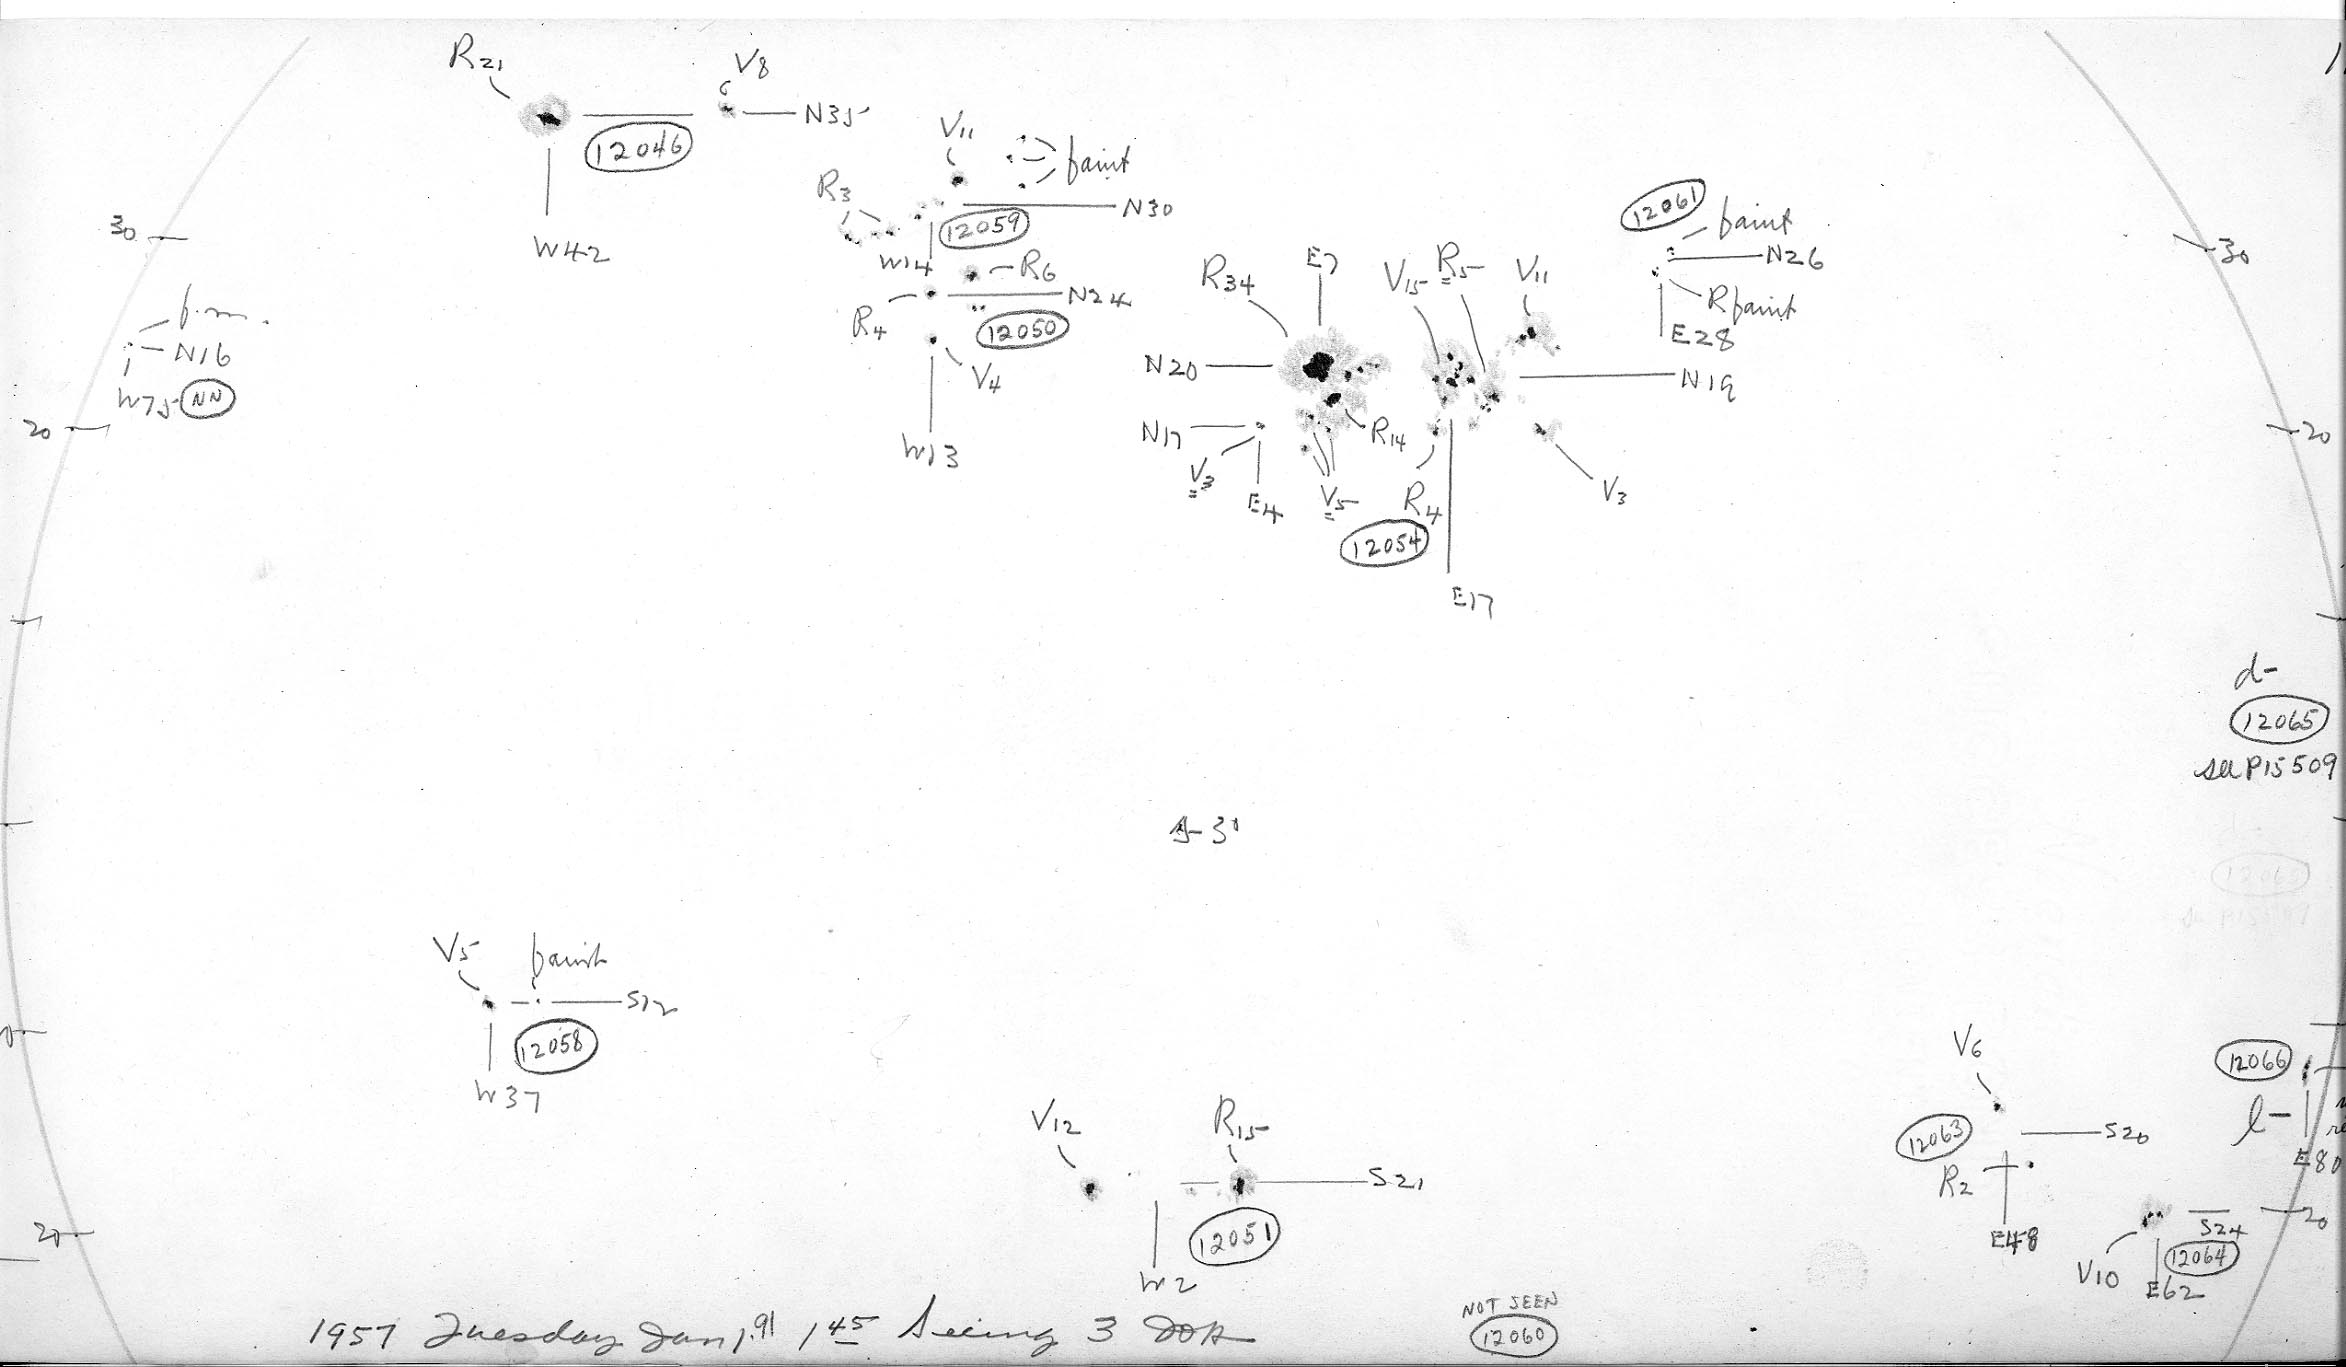 R21
V8
N35
12046
W42
V11
faint
R3
N30
12059
W14
R6
R4
N24
12050
V4
W13
30
f.m.
N16
W75 NN
20
12061
faint
N26
R faint
E28
30
R34
E7
V15
R5
V11
N20
N19
N17
R14
V3
E4
V5
R4
V3
12054
E17
20
d-
12065
see P15509
V5
faint
S12
12058
W37
V12
R15
S21
12051
W2
V6
12063
S20
R2
E48
12066
l-
E80
S24
20
12064
V10
E62
20
NOT SEEN
12060
1957 Tuesday Jan 1.91 1 45 Seeing 3